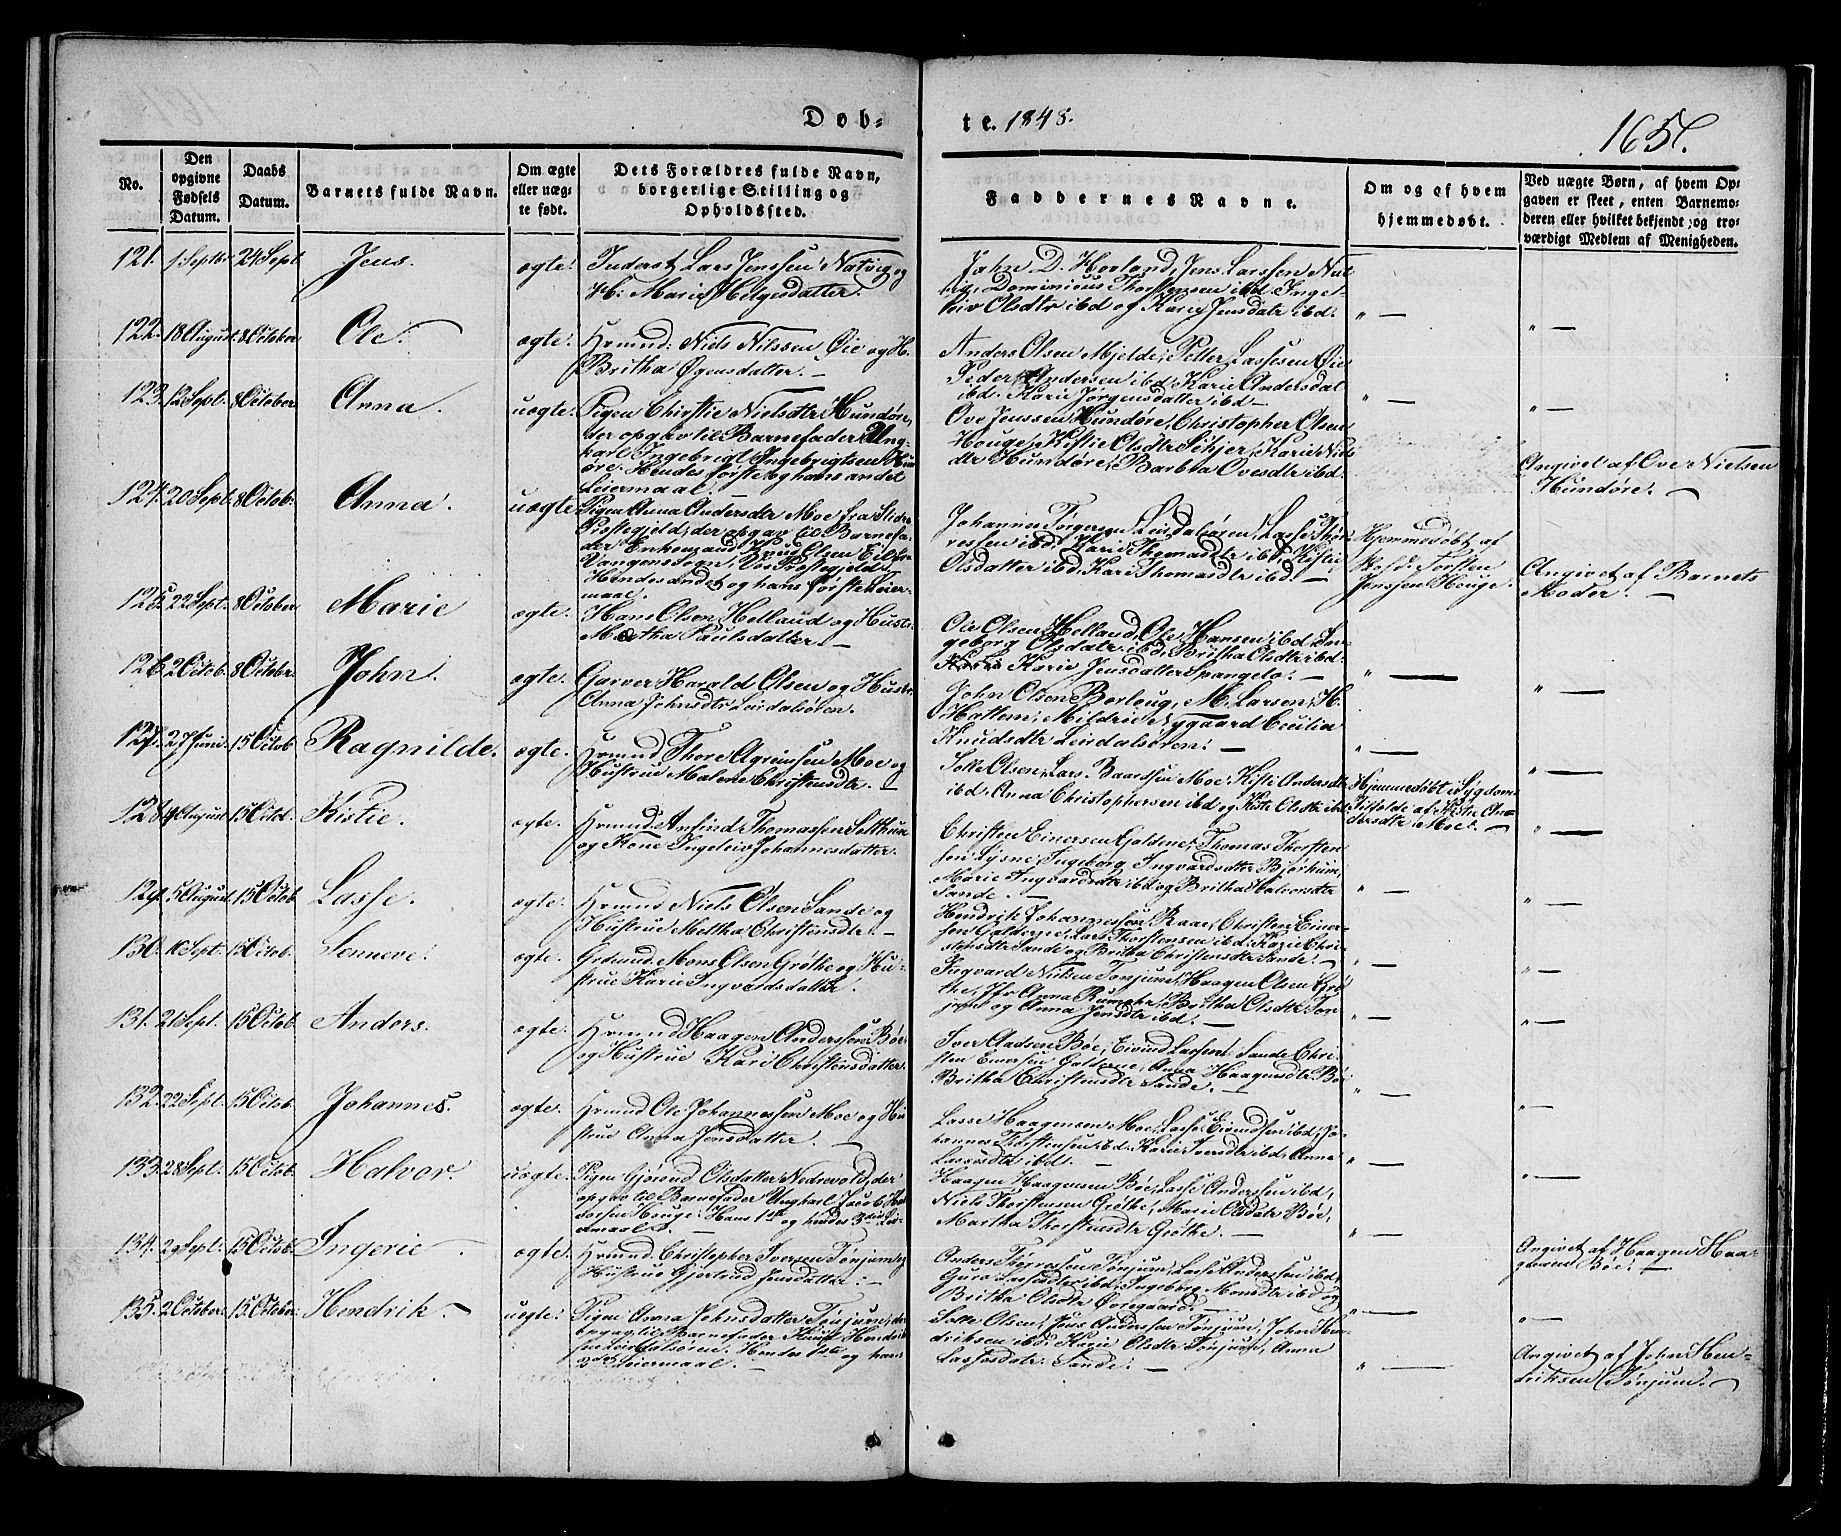 Døb-
te. 1848.
165.
No.
Den opgivne Fødsels Datum.
Daabs Datum.
Barnets fulde Navn.
Om ægte eller uægte født.
Dets Forældres fulde Navn, borgerlige Stilling og Opholdssted.
Faddernes Navne.
Om og af hvem hjemmedøbt.
Ved uægte Børn, af hvem Opgaven er skeet, enten Barnemoderen eller hvilket bekjendt og troværdigt Medlem af Menigheden.
121. 1 Septbr. 24 Sept. Jens. ægte.
Inderst Lars Jenssen Natvig og
H: Marie Helgesdatter.
John D. Hovland, Jens Larssen Nat-
vig, Dominicus Thorstensen ibd. Ingel-
eiv Olsdtr ibd og Karie Jensdatr ibd.
" —
122. 18 August. 8 October Ole. ægte.
Hrmnd: Niels Nilssen Øie og H.
Britha Øgensdatter. —
Anders Olsen Mjelde, Petter Lassesen Øie
Peder Andersen ibd. Karie Andersdat
ibd. Karie Jørgensdatter ibd —
" —
123. 12 Sept. 8 October Anna. uægte.
Pigen Chirstie Nielsdtr Hundøre,
der opgav til Barnefader Ung-
karl Ingebrigt Ingebrigtsen Hun
døre. Hendes første og hans andet
Leiermaal. —
Ove Jenssen Hundøre, Christopher Olsen
Houge, Kistie Olsdtr Sekjer, Karie Niels
dtr Hundøre, Barbra Ovesdtr ibd.
" —
Angivet af Ove Nielsen
Hundøre. —
124. 20 Sept. 8 Octob. Anna. uægte
Pigen Anna Andersdtr Moe fra Slidre
Præstegjeld, der opgav til Barnefa-
der Enkemand Knud Olsen
Vangens Sogn, Vos Præstegjeld.
Hendes andet og hans første Leier-
maal.
Johannes Torgersen Leirdalsøren, Lasse Thor
ressen ibd. Karie Thomasdtr ibd. Kistie
Olsdatter ibd. Kari Thomasdtr ibd. —
Hjemmedøbt af
Torsten
Jenssen Houge.
Angivet af Barnets
Moder. —
125. 22 Sept. 8 October Marie ægte.
Hans Olsen Helland og Hustr.
Martha Paulsdatter. —
Ole Olsen Helland, Ole Hansen ibd. In-
geborg Olsdatr ibd, Britha Olsdtr ibd.
Karie Jensdatter Spangelo. —
" —
126. 2 Octob. 8 October. John. ægte.
Garver Harald Olsen og Hustr.
Anna Johnsdtr Leirdalsøren.
John Olsen Borlaug, M. Larsen, H.
Hattem, Mildrie Nygaard Cecilia
Knudsdtr Leirdalsøren. —
" —
127. 27 Juni. 15 Octob Ragnilde. ægte.
Hrmnd Thore Agrimsen Moe og
Hustrue Malene Christensdtr.
Solle Olsen, Lars Baardsen Moe, Kisti Andersdtr
ibd. Anna Christophersen ibd og Kistie Olsdtr ibd.
Hjemmedøbt i Sygdoms-
Tilfælde af Kistie An-
dersdtr Moe. —
128. August 15 Octob. Kistie. ægte.
Hrmnd. Anfind Thomassen Solthun
og Kone Ingeleiv Johannesdatter.
Christen Einersen Galdene, Thomas Thorsten
sen Lysne, Ingeborg Ingvardsdtr Bjørkum,
Marie Ingvardsdtr ibd og Britha Halvorsdtr
Sande. —
" —
129. 5 August. 15 Octob. Lasse. ægte.
Hrmnd Niels Olsen Sande og
Hustrue Mettha Christensdtr. —
Hendrik Johannessen Raae, Christen Einer-
sen Galdene, Lars Thorstensen ibd. Karie Chri-
stensdtr Sande og Britha Christensdtr Sande. —
" —
130. 10 Sept. 15 Octob. Senneve. ægte.
Grdmnd. Mons Olsen Grøthe og Hu-
strue Karie Ingvardsdatter.
Ingvard Nielsen Tønjum, Haagen Olsen Grø
the, Jfr Anna Rumohr, Britha Olsdtr Tøn
jum og Anna Jensdtr ibd. —
" —
131. 21 Sept. 15 Octob. Anders. ægte.
Hrmnd Haagen Anderssen Bøe
og Hustrue Kari Christensdatter.
Iver Aadsen Bøe, Eivind Lassesen Sande Chri-
sten Einersen Galdene, Anna Haagensdtr Bøe
Britha Christensdtr Sande. —
" —
132. 22 Sept. 15 Octob. Johannes. ægte.
Hrmnd Ole Johannessen Moe og Hu
strue Anna Jensdatter. —
Lasse Haagensen Moe, Lasse Eivindsen ibd, Jo-
hannes Thorstensen ibd. Karie Iversdtr ibd. Anna
Lassesdtr ibd. —
" —
133. 28 Sept. 15 Octob. Halvor. uægte.
Pigen Gjørond Olsdatter Nedrevold, der
opgav til Barnefader Ungkarl Hal
vorsen Houge. Hans 1ste og hendes 3die Lei-
ermaal. —
Haagen Haagensen Bøe, Lasse Anderssen ibd,
Niels Thorstensen Grøthe, Marie Olsdatr Bøe,
Martha Thorstensdtr Grøthe. —
" —
Angivet af Haagen Haa-
gensen Bøe. —
134. 29 Sept. 15 Octob. Ingerie. ægte.
Hrmnd. Christopher Iversen Tønjum og
Hustrue Gjertrud Jensdatter. —
Anders Tørresen Tønjum, Lasse Anderssen ibd,
Guro Lassesdtr ibd, Ingeborg Monsdtr ibd og
Britha Olsdtr Øvregaard. —
" —
135. 2 October. 15 October. Hendrik. — uægte.
Pigen Anna Johnsdatter Tønjum, der
opgav til Barnefader Hendrik
sen Leirdalsøren. Hendes 1ste og hans
Leiermaal. —
Solle Olsen, Jens Anderssen Tønjum, John Hen-
driksen ibd. Karie Olsdtr Tønjum, Anna
Lassesdatr. Sande. —
" —
Angivet af John Hen-
driksen Tønjum. —